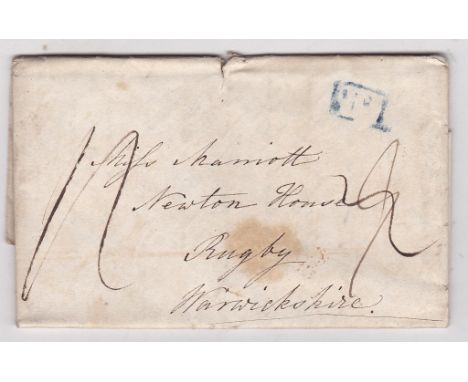 Miss Marriott
Newton House
Rugby
Warwickshire.